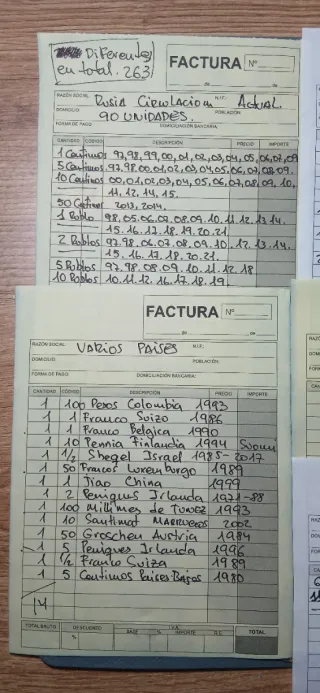 Diferentes
en total. 263
FACTURA Nº
de de
RAZÓN SOCIAL: Rusia Circulacion N.I.F.: Actual
DOMICILIO: 90 UNIDADES. POBLACIÓN:
FORMA DE PAGO: DOMICILIACIÓN BANCARIA:
CANTIDAD CÓDIGO DESCRIPCIÓN PRECIO IMPORTE
1 Centimos 97,98,99,00,01,02,03,04,05,06,07,09
5 Centimos 97.98.00.01.02.03.04.05.06.07.08.09.
10 Centimos 00.01.02.03.04.05.06.07.08.09.10.
11.12.14.15.
50 Centimos 2013, 2014.
1 Rublo 98.05.06.07.08.09.10.11.12.13.14.
15.16.17.18.19.20.21.
2 Rublos 97.98.06.07.08.09.10.12.13.14.
15.16.17.18.20.21.
5 Rublos 97.98.08.09.10.11.12.18
10 Rublos 10.11.12.16.17.18.19.
FACTURA Nº
de de
RAZÓN SOCIAL: VARIOS PAISES N.I.F.:
DOMICILIO: POBLACIÓN:
FORMA DE PAGO: DOMICILIACIÓN BANCARIA:
CANTIDAD CÓDIGO DESCRIPCIÓN PRECIO IMPORTE
1 100 Pesos Colombia 1993
1 1 Franco Suizo 1986
1 1 Franco Belgica 1990
1 10 Pennia Finlandia 1994 Suomi
1 1/2 Shegel Israel 1985-2017
1 50 Francos Luxemburgo 1989
1 1 Jiao China 1999
1 2 Peniques Irlanda 1971-88
1 100 Millimes de TUNEZ 1993
1 10 Santimat MARRUECOS 2002
1 50 Groschen Austria 1984
1 5 Peniques Irlanda 1996
1 1/2 Franco Suiza 1989
1 5 Centimos Paises-Bajos 1980
14
TOTAL BRUTO DESCUENTO I.V.A. TOTAL
% BASE % IMPORTE R.E.